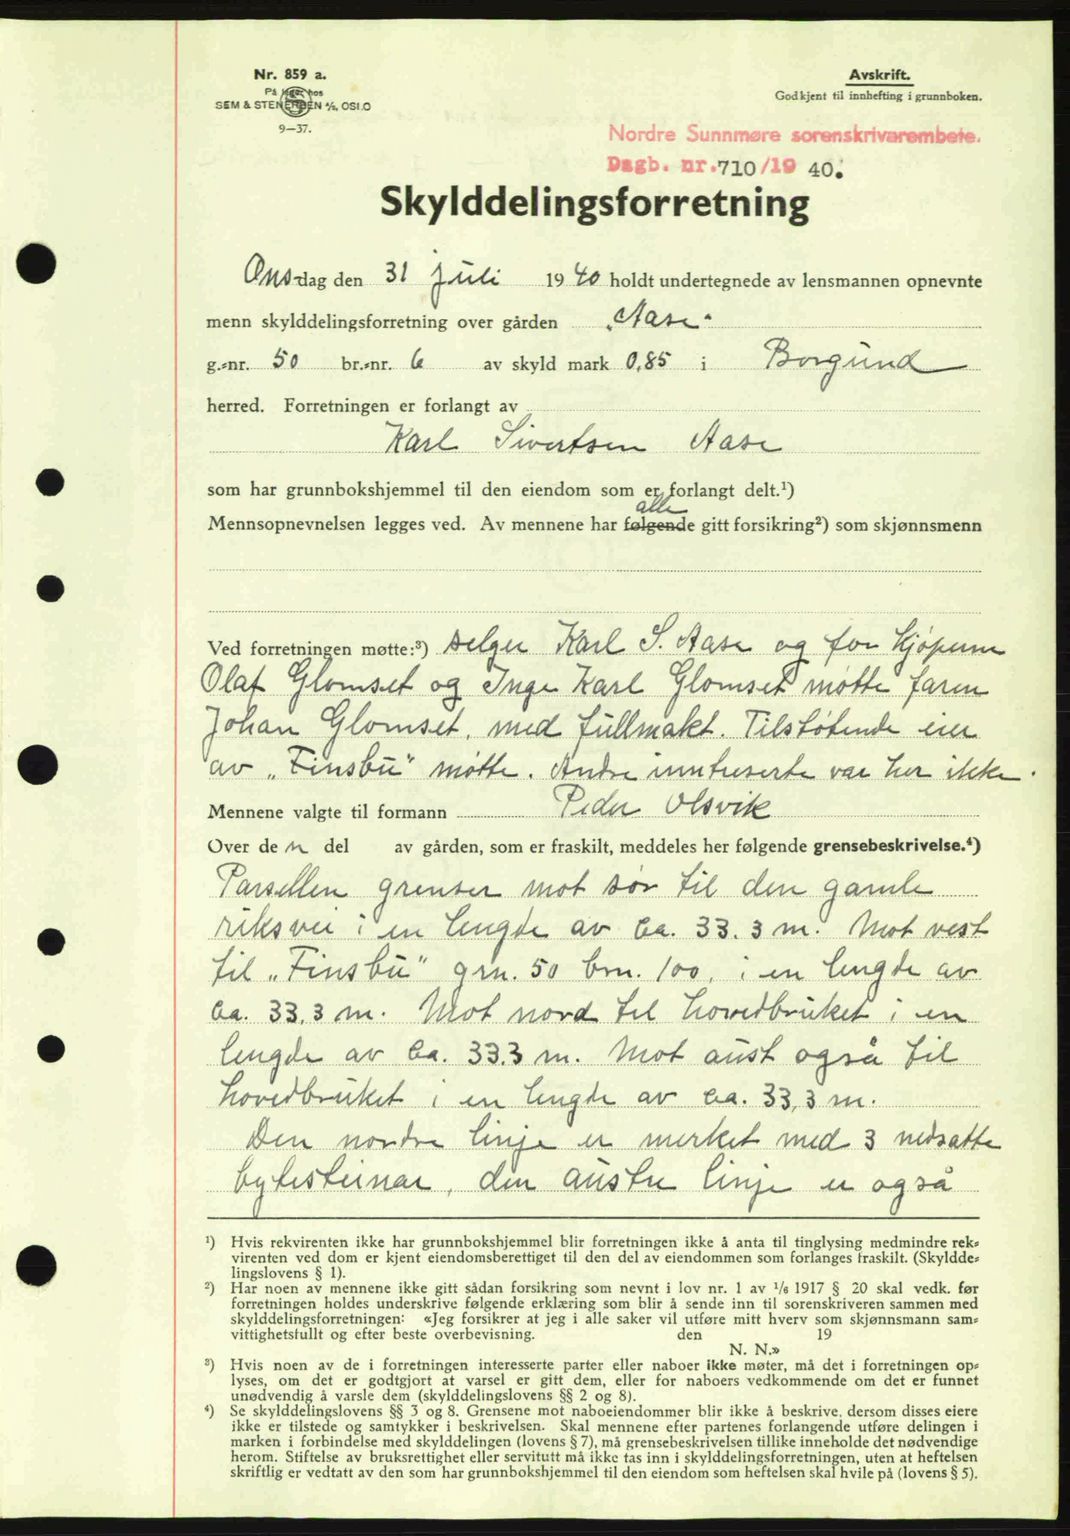 Nr. 859 a.
På lager hos
SEM & STENERSEN A/S, OSLO
9—37.
Avskrift.
Godkjent til innhefting i grunnboken.
Nordre Sunnmøre sorenskrivarembete.
Dagb. nr. 710/19 40.
Skylddelingsforretning
Onsdag den 31 juli 1940 holdt undertegnede av lensmannen opnevnte
menn skylddelingsforretning over gården „Aase“
g.-nr. 50 br.-nr. 6 av skyld mark 0,85 i Borgund
herred. Forretningen er forlangt av
Karl Sivertsen Aase
som har grunnbokshjemmel til den eiendom som er forlangt delt.¹)
alle
Mennsopnevnelsen legges ved. Av mennene har følgende gitt forsikring²) som skjønnsmenn
Ved forretningen møtte:³) selger Karl S. Aase og for kjøperne
Olaf Glomset og Inge Karl Glomset møtte faren
Johan Glomset, med fullmakt. Tilstøtende eier
av „Finsbu“ møtte. Andre inntereserte var her ikke.
Mennene valgte til formann Peder Olsvik
Over den del av gården, som er fraskilt, meddeles her følgende grensebeskrivelse.⁴)
Parsellen grenser mot sør til den gamle
riksvei i en lengde av ca. 33.3 m. Mot vest
til „Finsbu“ grn. 50 brn. 100, i en lengde av
ca. 33,3 m. Mot nord til hovedbruket i en
lengde av ca. 33.3 m. Mot aust også til
hovedbruket i en lengde av ca. 33,3 m.
Den nordre linje er merket med 3 nedsatte
bytesteinar, den austre linje er også
¹) Hvis rekvirenten ikke har grunnbokshjemmel blir forretningen ikke å anta til tinglysing medmindre rek-
virenten ved dom er kjent eiendomsberettiget til den del av eiendommen som forlanges fraskilt. (Skyldde-
lingslovens § 1).
²) Har noen av mennene ikke gitt sådan forsikring som nevnt i lov nr. 1 av 1/6 1917 § 20 skal vedk. før
forretningen holdes underskrive følgende erklæring som blir å sende inn til sorenskriveren sammen med
skylddelingsforretningen: «Jeg forsikrer at jeg i alle saker vil utføre mitt hverv som skjønnsmann sam-
vittighetsfullt og efter beste overbevisning. den 19
N. N.»
³) Hvis noen av de i forretningen interesserte parter eller naboer ikke møter, må det i forretningen op-
lyses, om det er godtgjort at varsel er gitt dem, eller for naboers vedkommende om det er funnet
unødvendig å varsle dem (skylddelingslovens §§ 2 og 8).
⁴) Se skylddelingslovens §§ 3 og 8. Grensene mot naboeiendommer blir ikke å beskrive, dersom disses eiere
ikke er tilstede og samtykker i beskrivelsen. Skal mennene efter partenes forlangende utføre delingen i
marken i forbindelse med skylddelingen (lovens § 7), må grensebeskrivelsen tillike inneholde det nødvendige
herom. Stiftelse av bruksrettighet eller servitutt må ikke tas inn i skylddelingsforretningen, uten at heftelsen
skriftlig er vedtatt av den som har grunnbokshjemmel til den eiendom som heftelsen skal hvile på (lovens § 5).